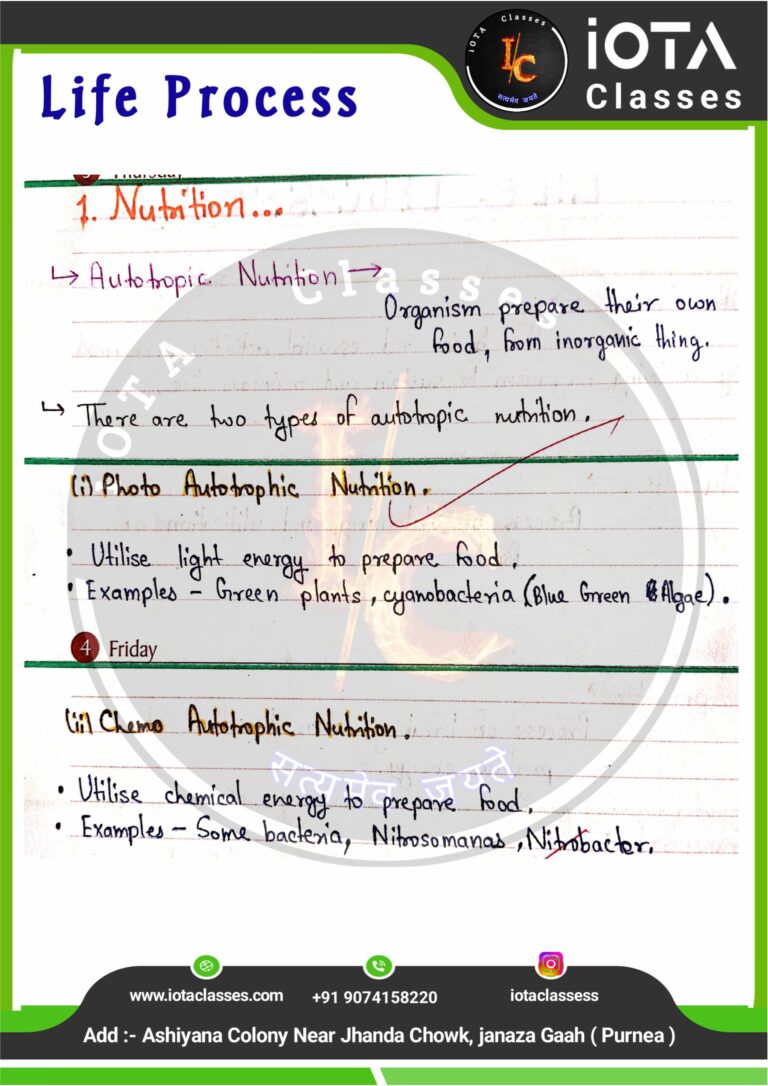 iOTA Classes
I/C
सत्यमेव जयते
iOTA
Classes
Life Process
Thursday
1. Nutrition...
↳ Autotropic Nutrition →
Organism prepare their own
food, from inorganic thing.
↳ There are two types of autotropic nutrition.
(i) Photo Autotrophic Nutrition.
• Utilise light energy to prepare food.
• Examples - Green plants, cyanobacteria (Blue Green Algae).
4 Friday
(ii) Chemo Autotrophic Nutrition.
• Utilise chemical energy to prepare food.
• Examples - Some bacteria, Nitrosomanas, Nitrobacter.
IOTA Classes
I/C
सत्यमेव जयते
www.iotaclasses.com
+91 9074158220
iotaclassess
Add :- Ashiyana Colony Near Jhanda Chowk, janaza Gaah ( Purnea )